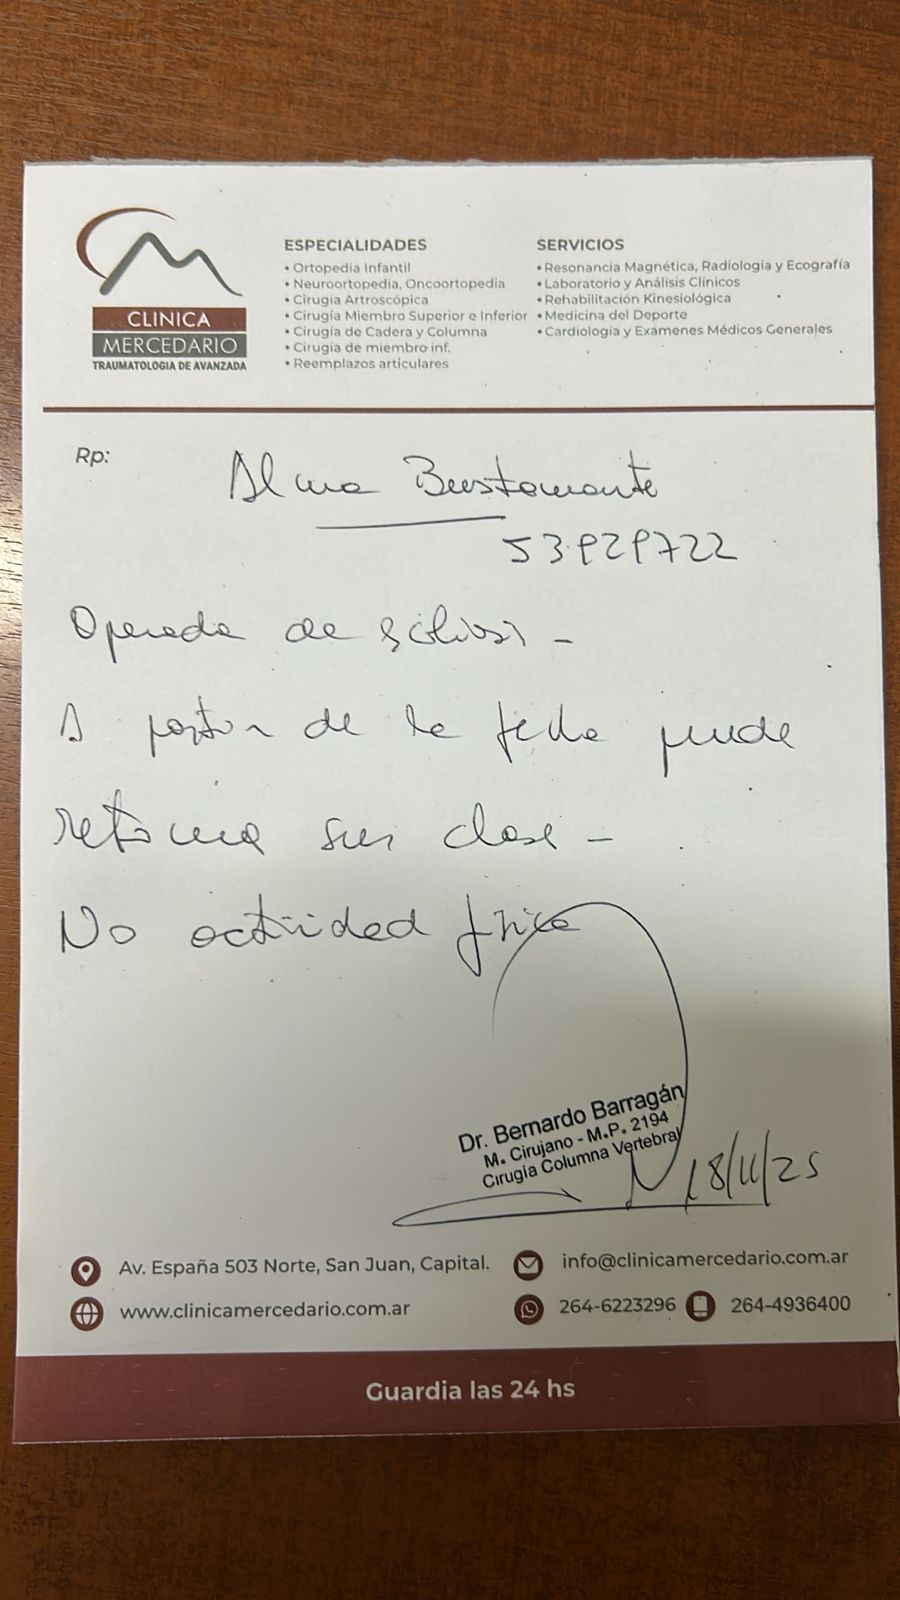 CLINICA
MERCEDARIO
TRAUMATOLOGIA DE AVANZADA
ESPECIALIDADES
• Ortopedia Infantil
• Neuroortopedia, Oncoortopedia
• Cirugía Artroscópica
• Cirugía Miembro Superior e Inferior
• Cirugía de Cadera y Columna
• Cirugía de miembro inf.
• Reemplazos articulares
SERVICIOS
• Resonancia Magnética, Radiología y Ecografía
• Laboratorio y Análisis Clínicos
• Rehabilitación Kinesiológica
• Medicina del Deporte
• Cardiología y Exámenes Médicos Generales
Rp:
Alma Bustamante
53929722
Operada de
A partir de la fecha puede
retomar sus clases -
No actividad física
Dr. Bernardo Barragán
M. Cirujano - M.P. 2194
Cirugía Columna Vertebral
18/11/25
Av. España 503 Norte, San Juan, Capital.
info@clinicamercedario.com.ar
www.clinicamercedario.com.ar
264-6223296
264-4936400
Guardia las 24 hs